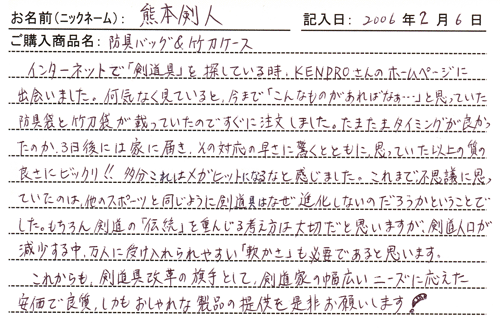 お名前(ニックネーム): 熊本剣人 記入日: 2006年2月6日
ご購入商品名: 防具バッグ&竹刀ケース
インターネットで「剣道具」を探している時、KENPROさんのホームページに
出会いました。何気なく見ていると、今まで「こんなものがあればなぁ…」と思っていた
防具袋と竹刀袋が載っていたのですぐに注文しました。たまたまタイミングが良かっ
たのか、3日後には家に届き、その対応の早さに驚くとともに、思っていた以上の質の
良さにビックリ!! 多分これはメガヒットになるなと感じました。これまで不思議に思っ
ていたのは、他のスポーツと同じように剣道具はなぜ進化しないのだろうかということで
した。もちろん剣道の「伝統」を重んじる考え方は大切だと思いますが、剣道人口が
減少する中、万人に受け入れられやすい「軟かさ」も必要であると思います。
これからも、剣道具改革の旗手として、剣道家の幅広いニーズに応えた
安価で良質、しかもおしゃれな製品の提供を是非お願いします!